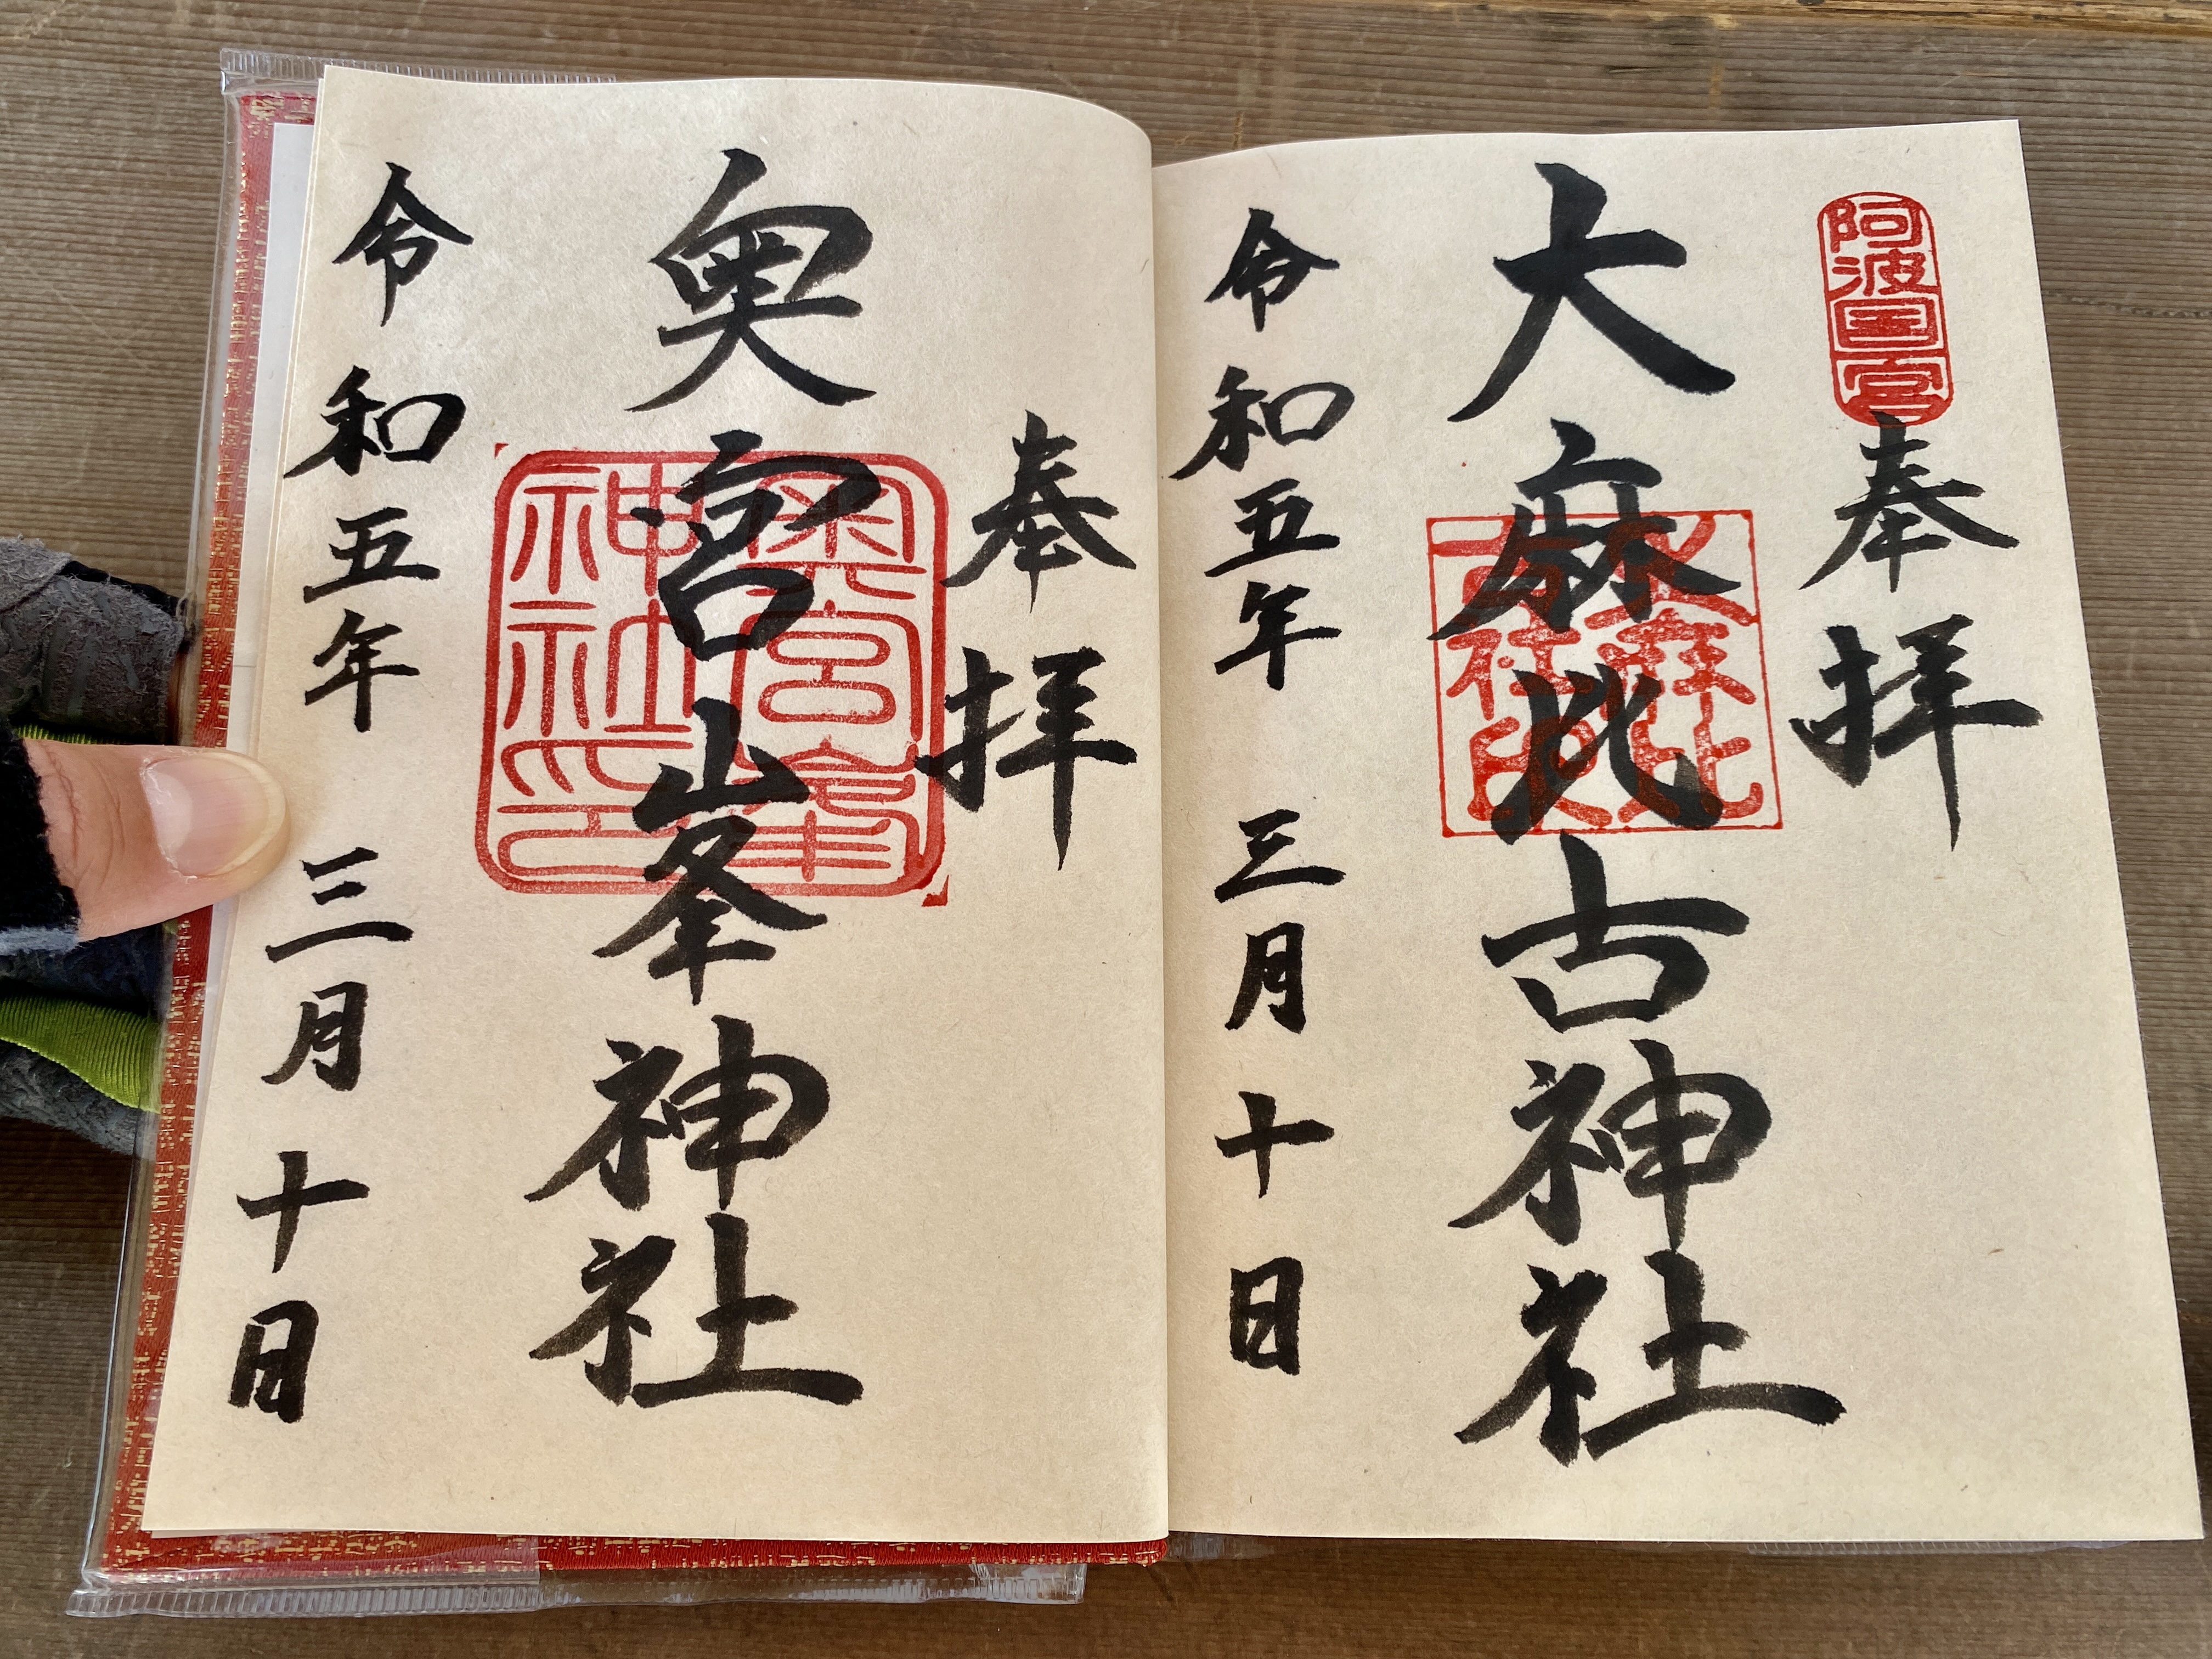 阿波国一宮
奉拝
大麻比古神社
大麻比
令和五年 三月十日
奉拝
奥宮峯神社
奥宮峯
神社印
令和五年 三月十日